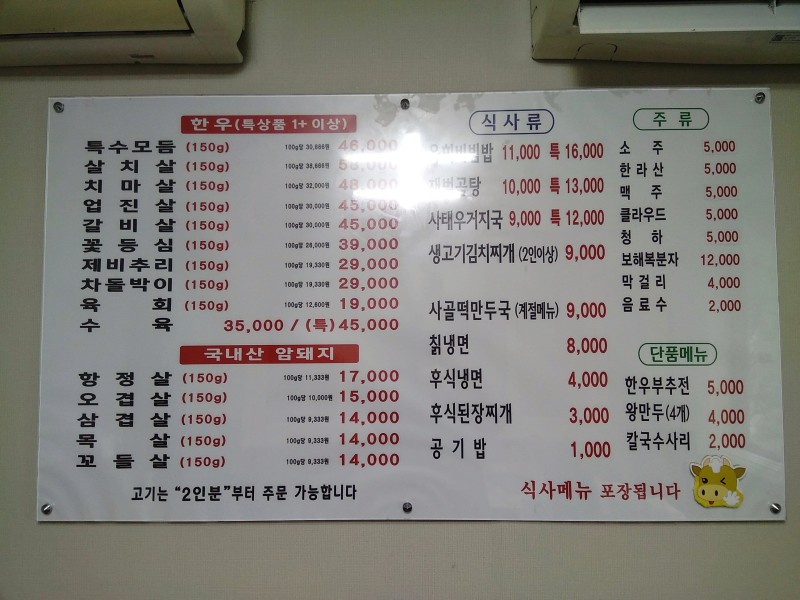 한우(특상품 1+ 이상)
특수모듬 (150g) 100g당 30,666원 46,000
살치살 (150g) 100g당 38,666원 58,000
치마살 (150g) 100g당 32,000원 48,000
업진살 (150g) 100g당 30,000원 45,000
갈비살 (150g) 100g당 30,000원 45,000
꽃등심 (150g) 100g당 26,000원 39,000
제비추리 (150g) 100g당 19,330원 29,000
차돌박이 (150g) 100g당 19,330원 29,000
육회 (150g) 100g당 12,600원 19,000
수육 35,000 / (특) 45,000
국내산 암돼지
항정살 (150g) 100g당 11,333원 17,000
오겹살 (150g) 100g당 10,000원 15,000
삼겹살 (150g) 100g당 9,333원 14,000
목살 (150g) 100g당 9,333원 14,000
꼬들살 (150g) 100g당 9,333원 14,000
고기는 “2인분”부터 주문 가능합니다
식사류
육회비빔밥 11,000 특 16,000
10,000 특 13,000
사태우거지국 9,000 특 12,000
생고기김치찌개 (2인이상) 9,000
사골떡만두국 (계절메뉴) 9,000
칡냉면 8,000
후식냉면 4,000
후식된장찌개 3,000
공기밥 1,000
주류
소주 5,000
한라산 5,000
맥주 5,000
클라우드 5,000
청하 5,000
보해복분자 12,000
막걸리 4,000
음료수 2,000
단품메뉴
한우부추전 5,000
왕만두(4개) 4,000
칼국수사리 2,000
식사메뉴 포장됩니다